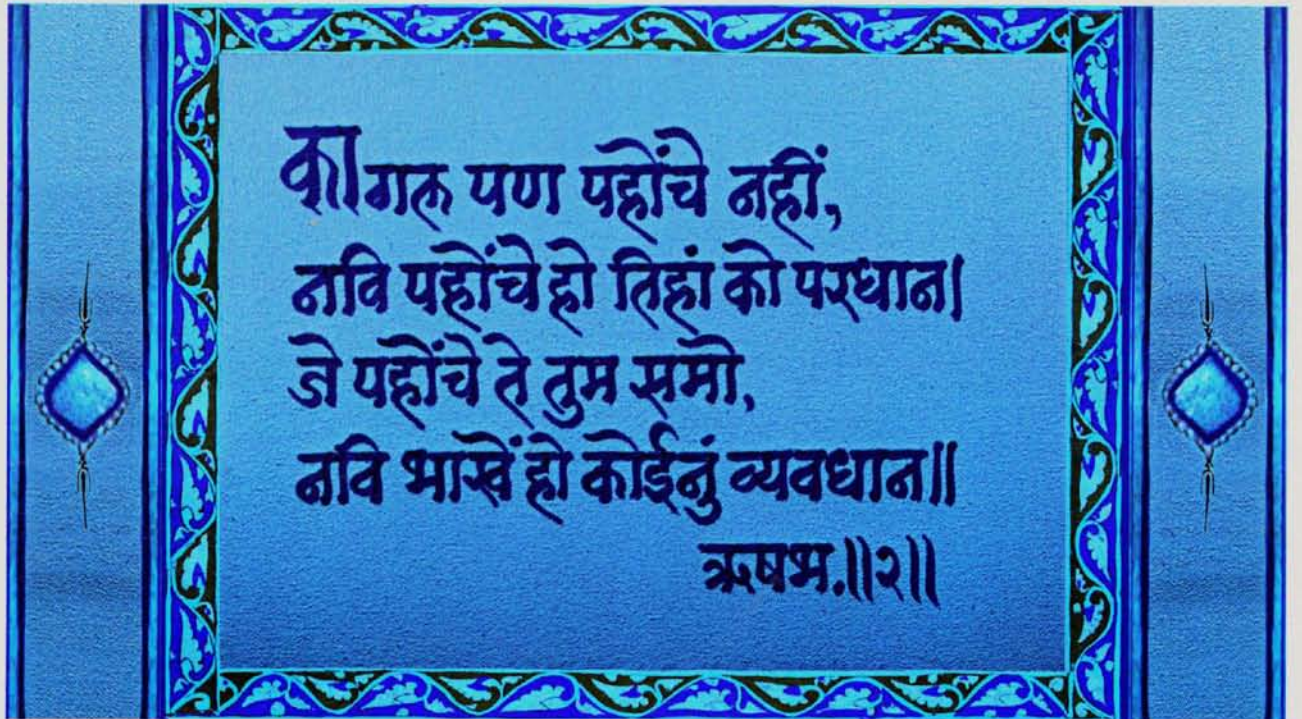 कागल पण पहोंचे नहीं,
नवि पहोंचे हो तिहां को परधान।
जे पहोंचे ते तुम समो,
नवि भाखें हो कोईनुं व्यवधान॥
ऋषभ.॥२॥